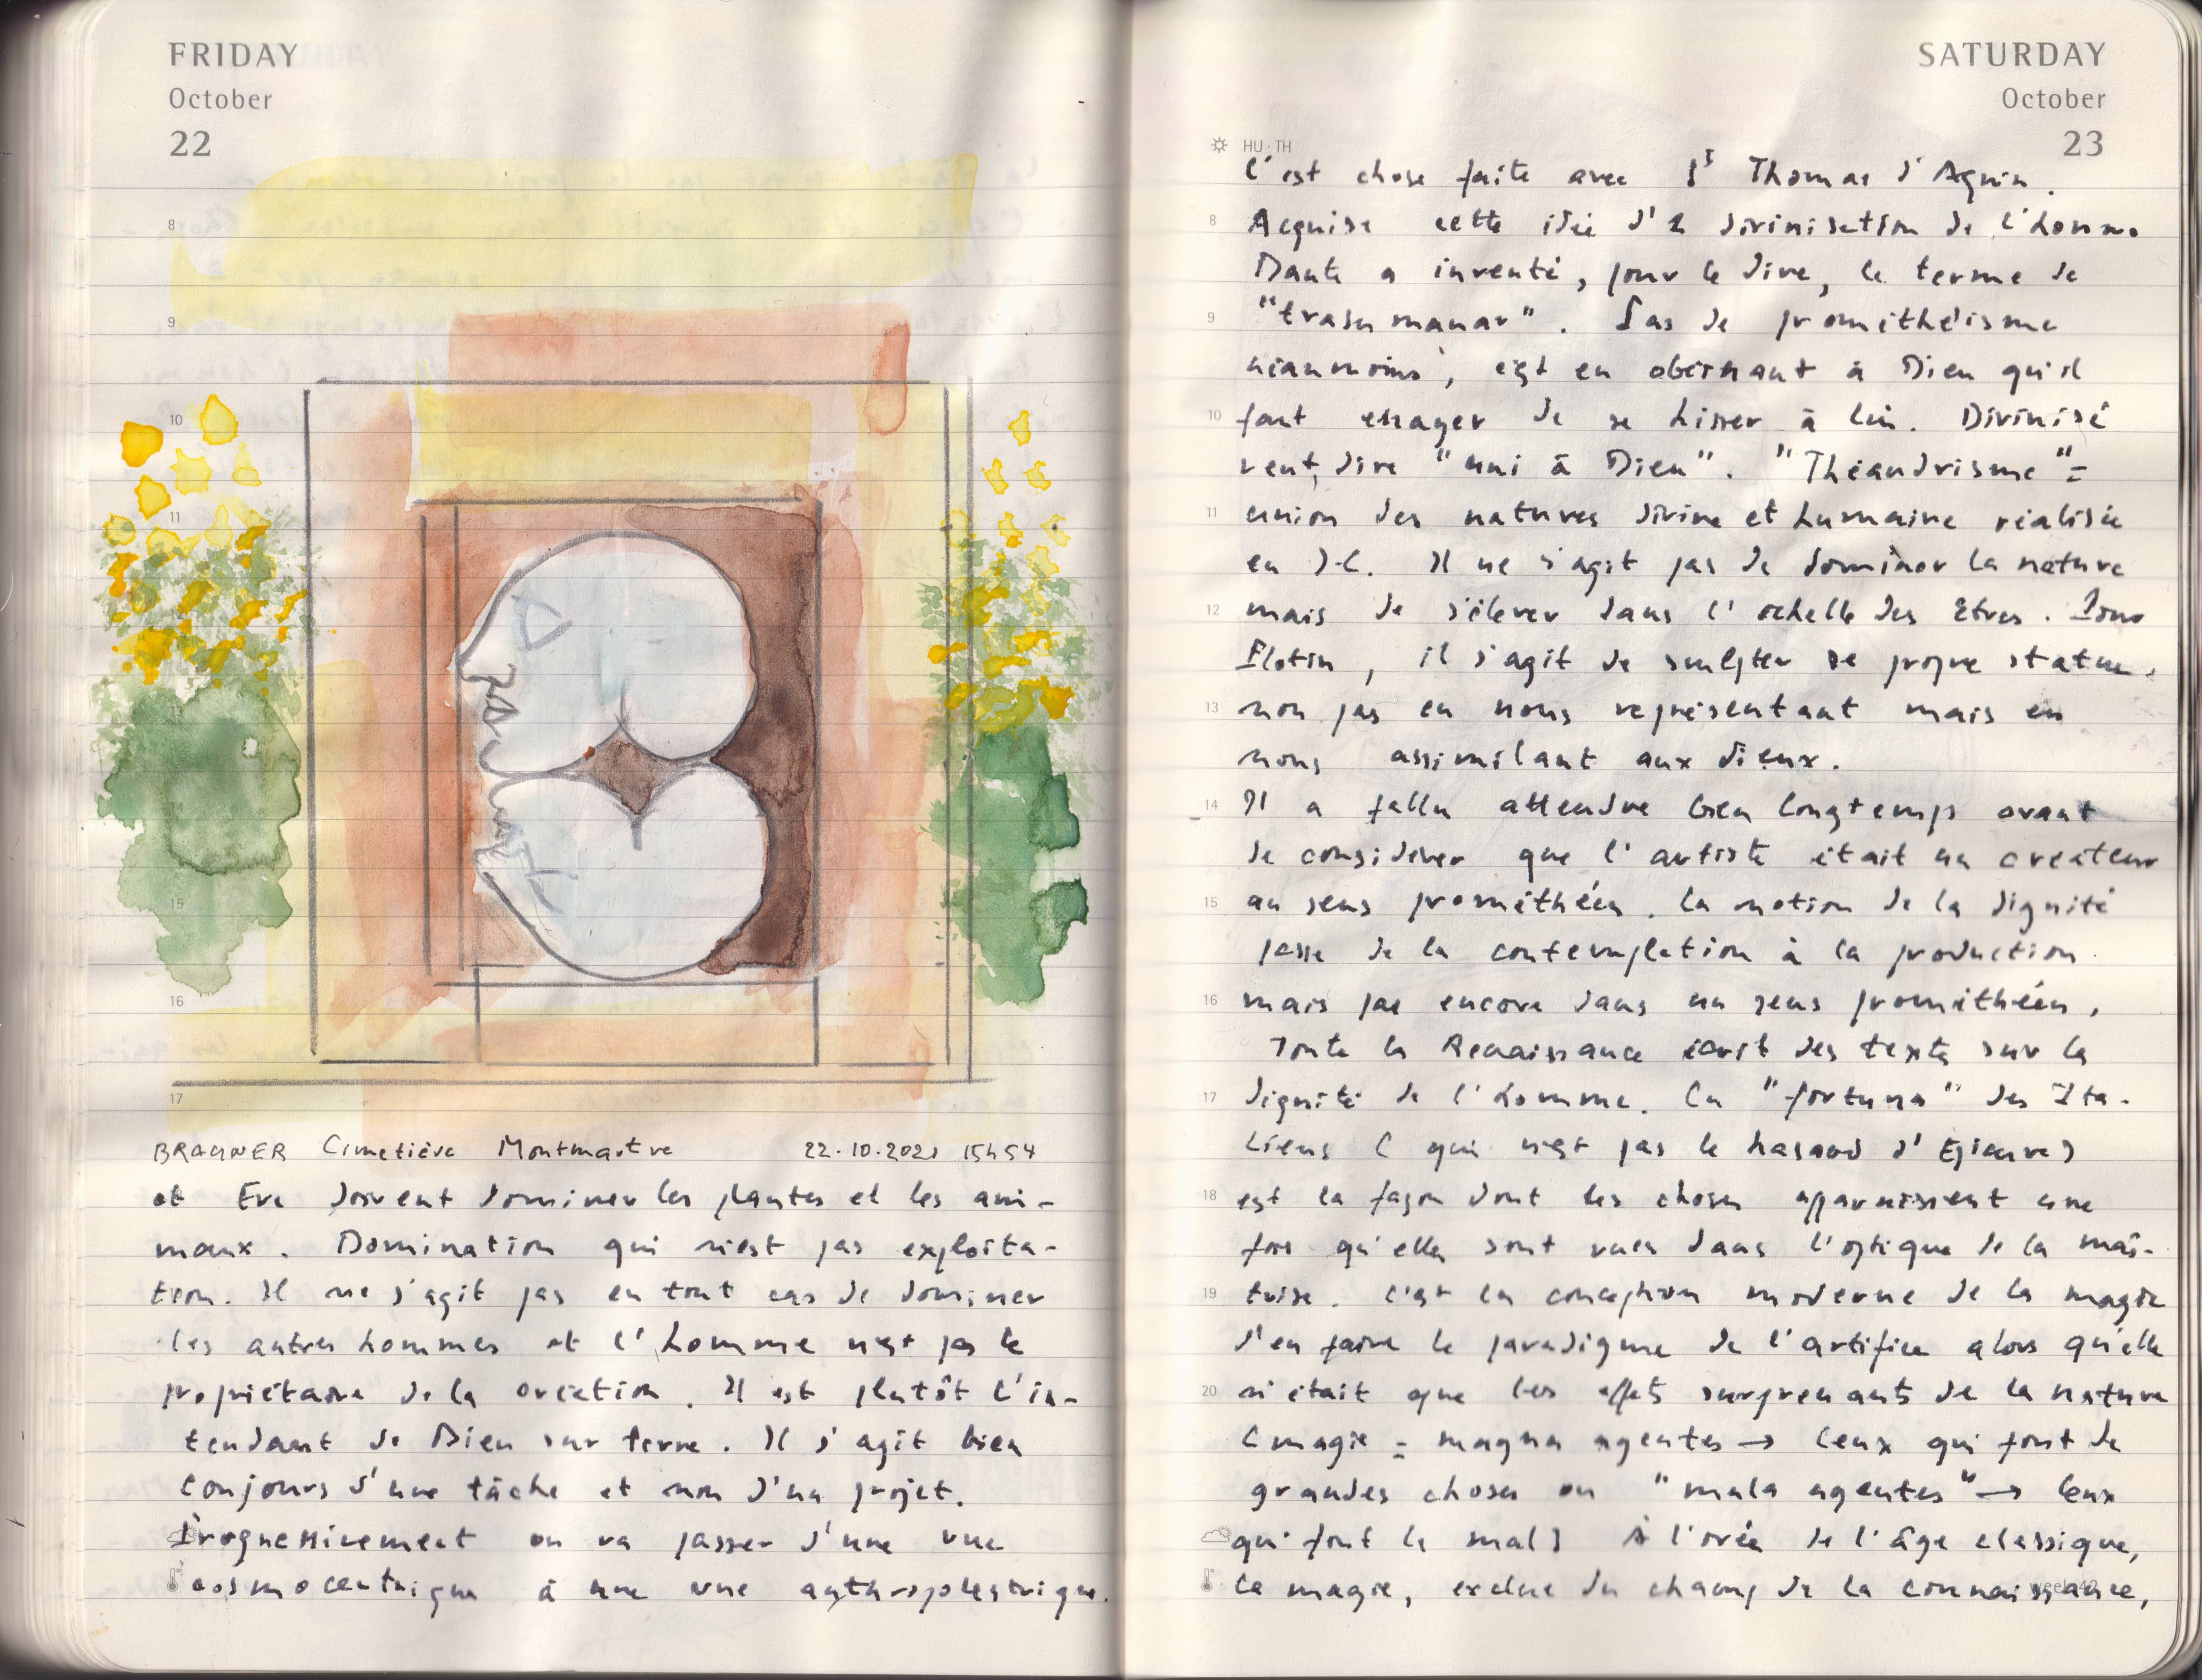 FRIDAY
October
22
8
9
10
11
12
13
14
15
16
17
BRAUNER Cimetière Montmartre 22.10.2021 15h54
et Eve doivent dominer les plantes et les ani-
maux. Domination qui n'est pas exploita-
tion. Il ne s'agit pas en tout cas de dominer
les autres hommes et l'homme n'est pas le
propriétaire de la création. Il est plutôt l'in-
tendant de Dieu sur terre. Il s'agit bien
toujours d'une tâche et non d'un projet.
Progressivement on va passer d'une vue
cosmocentrique à une vue anthropocentrique.
SATURDAY
October
23
HU · TH
C'est chose faite avec St Thomas d'Aquin.
8 Acquise cette idée d'1 divinisation de l'homme
Dante a inventé, pour le dire, le terme de
9 "trasumanar". Pas de prométhéisme
néanmoins, c'est en obéissant à Dieu qu'il
10 faut essayer de se hisser à lui. Divinisé
veut dire "uni à Dieu". "Théandrisme" =
11 union des natures divine et humaine réalisée
en J-C. Il ne s'agit pas de dominer la nature
12 mais de s'élever dans l'échelle des êtres. Pour
Plotin, il s'agit de sculpter sa propre statue,
13 non pas en nous représentant mais en
nous assimilant aux dieux.
14 Il a fallu attendre bien longtemps avant
de considérer que l'artiste était un créateur
15 au sens prométhéen. La notion de la dignité
passe de la contemplation à la production
16 mais pas encore dans un sens prométhéen,
Toute la Renaissance écrit des textes sur la
17 dignité de l'homme. La "fortuna" des Ita-
liens (qui n'est pas le hasard d'Epicure)
18 est la façon dont les choses apparaissent une
fois qu'elles sont vues dans l'optique de la maî-
19 trise. C'est la conception moderne de la magie
d'en faire le paradigme de l'artifice alors qu'elle
20 n'était que les effets surprenants de la nature
(magie = magna agentes → Ceux qui font de
grandes choses ou "mala agentes" → Ceux
qui font le mal) À l'orée de l'âge classique,
la magie, exclue du champ de la connaissance,